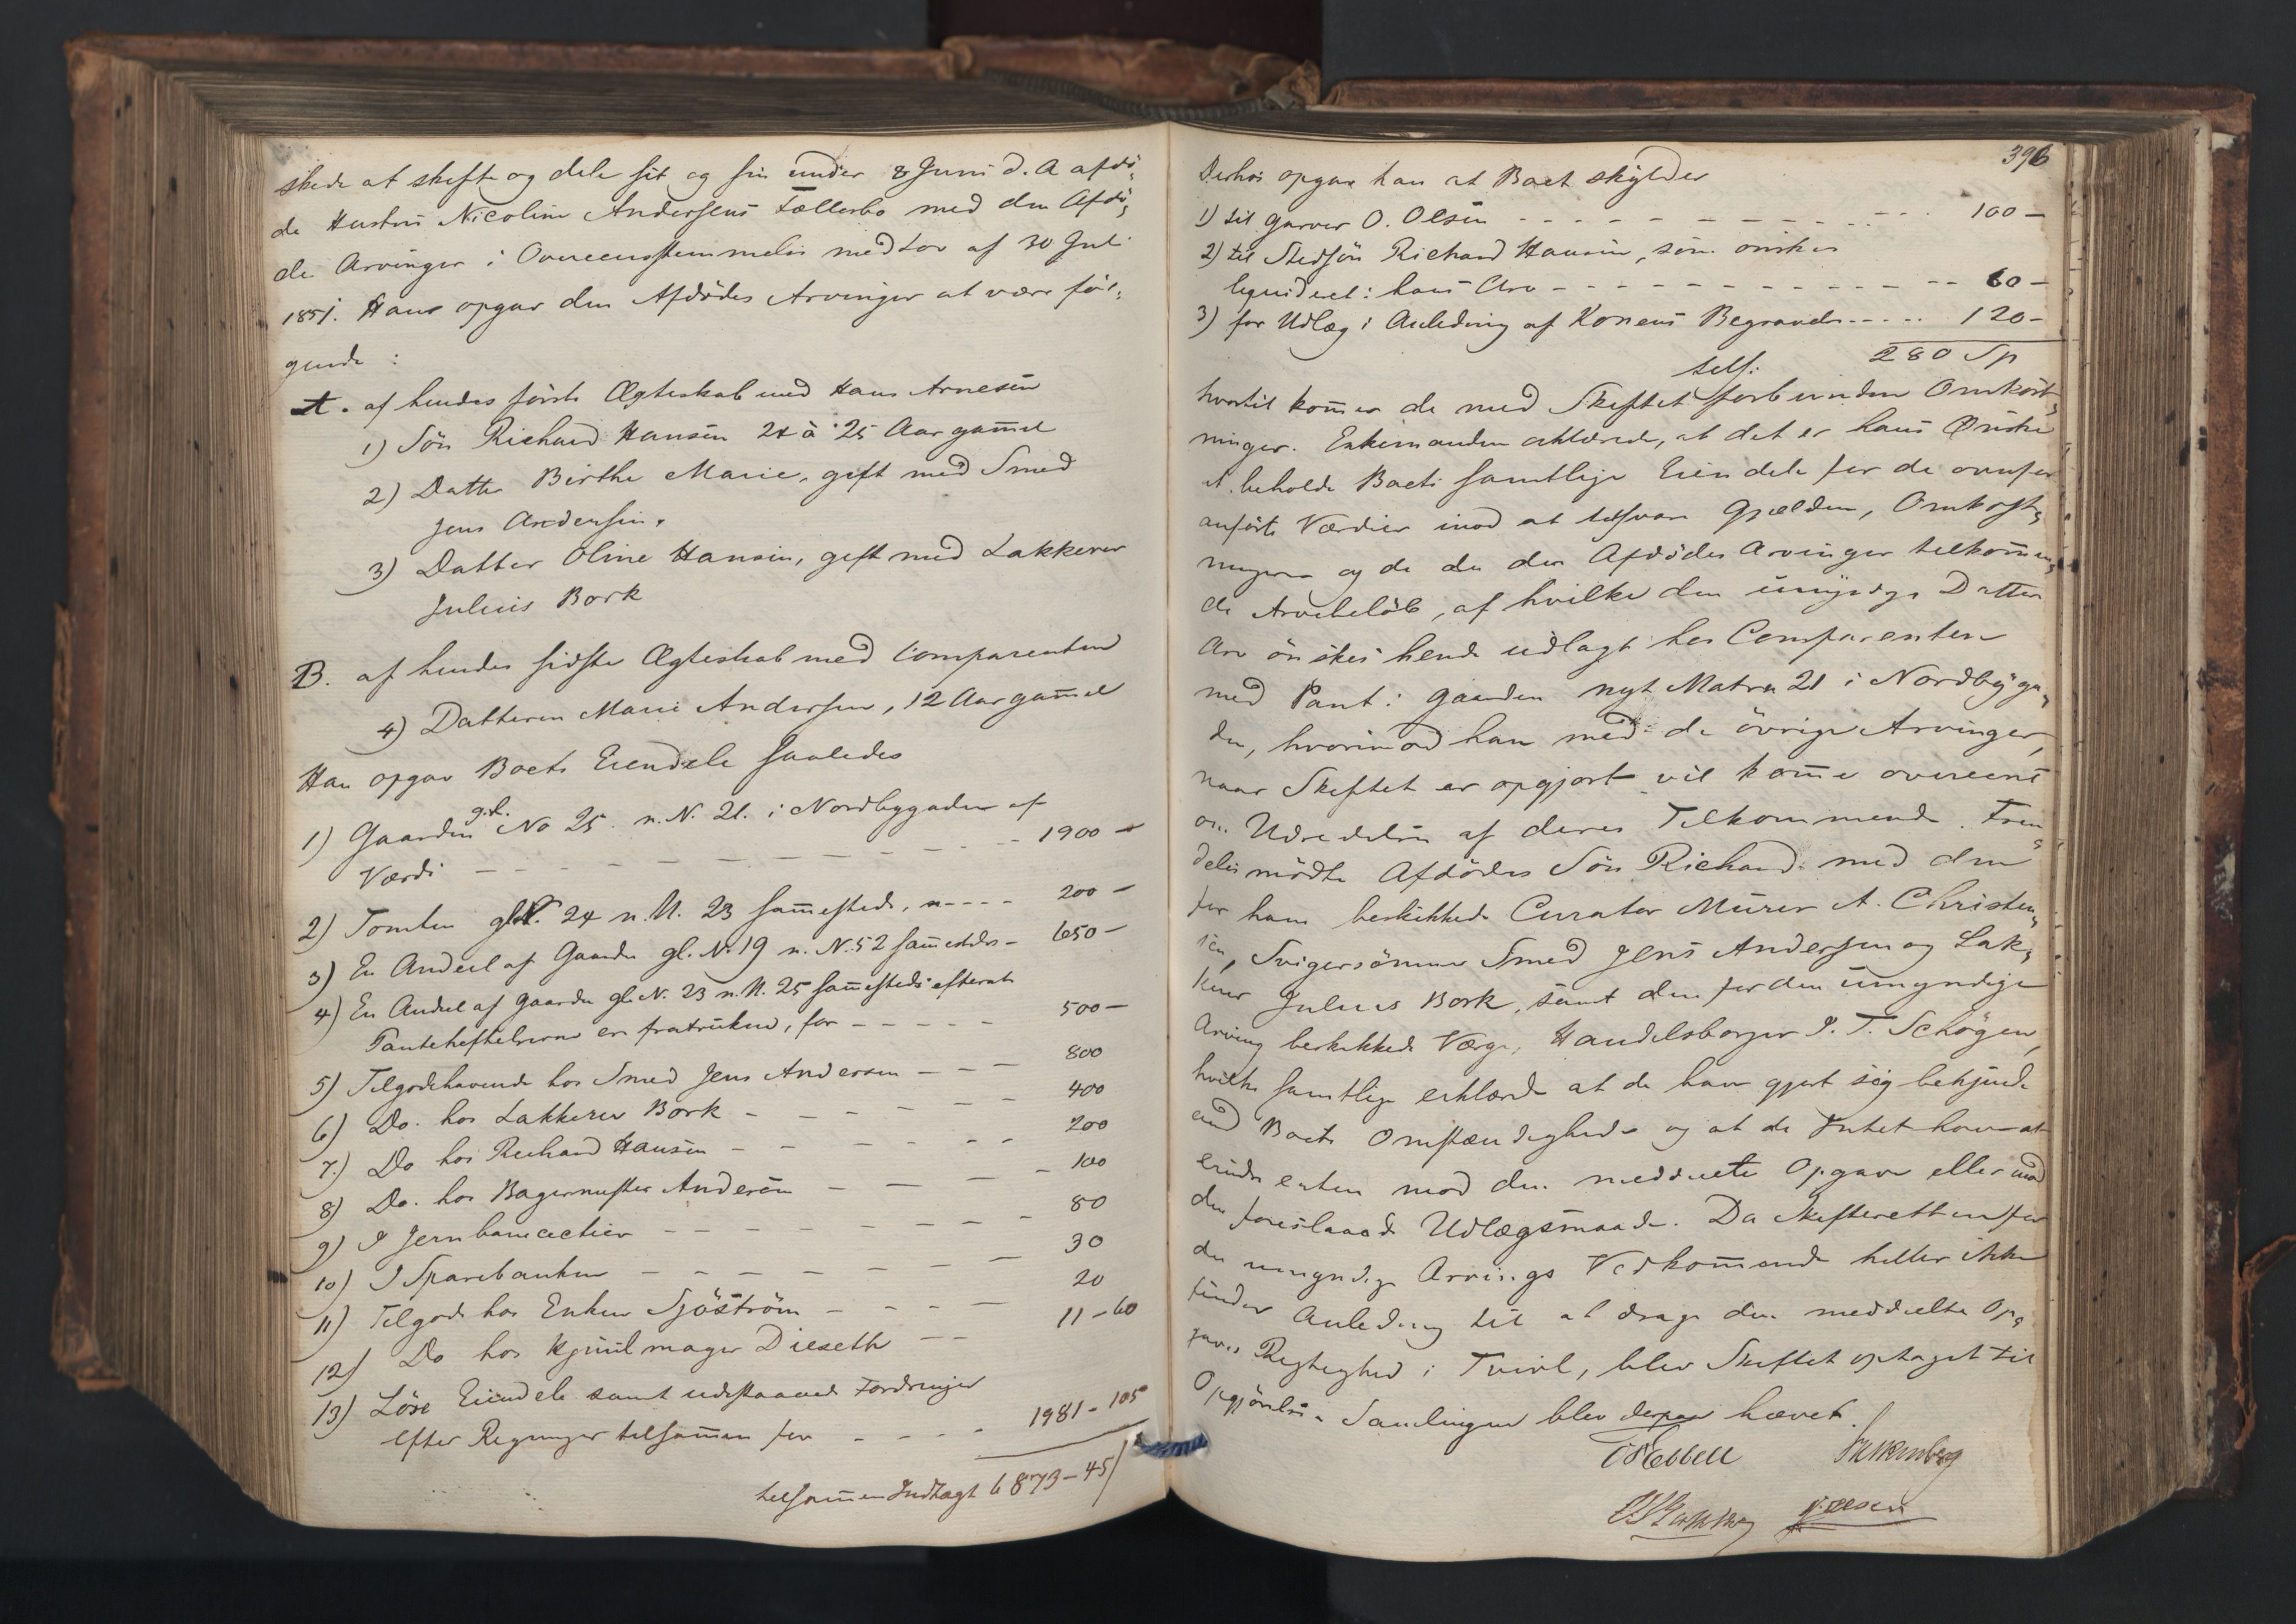 skede at skifte og dele sit og sin under 8 Juni d. A afdö-
de Hustru Nicoline Andersens Fællesbo med den Afdö-
des Arvinger i Overeensstemmelse med Lov af 30 Juli
1851. Han opgav den Afdödes Arvinger at være föl-
gende :
A. af hendes förste Ægteskab med Hans Arnesen
1) Sön Richard Hansen 24 à 25 Aar gam̄el
2) Datter Birthe Marie, gift med Smed
Jens Andersen.
3) Datter Oline Hansen, gift med Lakkerer
Julius Bork
B. af hendes sidste Ægteskab med Comparenten
4) Datteren Marie Andersen, 12 Aar gam̄el
Han opgav Boets Eiendele saaledes
1) Gaarden gl. No 25. n. N. 21. i Nordbygaden af
Værdi - - - - 1900 -
2) Tomten gl N. 24 n. N. 23 sam̄esteds, - - - - 200 -
3) En Andeel af Gaarden gl. N. 19 n. N. 52 sam̄esteds - 650 -
4) En Andeel af Gaarden gl. N. 23 n. N. 25 sam̄esteds efterat
Panteheftelserne er fratrukne, for - - - - - 500 -
5) Tilgodehavende hos Smed Jens Andersen - - - 800
6) Do. hos Lakkerer Bork - - - - - - 400
7) Do hos Richard Hansen - - - - - - 200
8) Do. hos Bagermester Andersen - - - - 100
9) I Jernbaneactier - - - - - - - 80
10) I Sparebanken - - - - - - - 30
11) Tilgode hos Enken Sjöström - - - - 20
12) Do hos Hjulmager Dieseth - - 11 - 60
13) Löse Eiendele samt udestaaende Fordringer
efter Regninger tilsam̄en for - - - - 1981 - 105
tilsam̄en Indtægt 6873 - 45
396
Derhos opgav han at Boet skylder
1) til Garver O. Olsen - - - - - - - - - - 100 -
2) til Stedsön Richard Hansen, som önskes
liqvideret i hans Arv - - - - - - - - - - 60 -
3) for Udlæg i Anledning af Konens Begravelse - - - - 120 -
tils. 280 Sp
hvortil kom̄er de med Skiftet forbundne Omkost-
ninger. Enkemanden erklærede, at det er hans Önske
at beholde Boets samtlige Eiendele for de ovenfor
anförte Værdier imod at tilsvare Gjælden, Omkost-
ningerne og de den Afdödes Arvinger tilkom̄en-
de Arvebelöb, af hvilke den umyndige Datters
Arv önskes hende udlagt hos Comparenten
med Pant i Gaarden nyt Matr. 21 i Nordbyga-
den, hvorimod han med de övrige Arvinger,
naar Skiftet er opgjort vil kom̄e overeens
om Udredelsen af deres Tilkommende. Frem-
deles mödte Afdödes Sön Richard med den
for ham beskikkede Curator Murer A. Christen-
sen, Svigersönnerne Smed Jens Andersen og Lak-
kerer Julius Bork, samt den for den umyndige
Arving beskikkede Værge, Handelsborger P. T. Schögen,
hvilke samtlige erklærede at de have gjort sig bekjendt
med Boets Omstændigheder og at de Intet have at
erindre enten mod den meddeelte Opgave eller mod
den foreslaaede Udlægsmaade. Da Skifteretten for
den umyndige Arvings Vedkom̄ende heller ikke
finder Anledning til at drage den meddeelte Op-
gaves Rigtighed i Tvivl, blev Skiftet optaget til
Opgjörelse. Samlingen blev derpaa hævet.
Ebbell